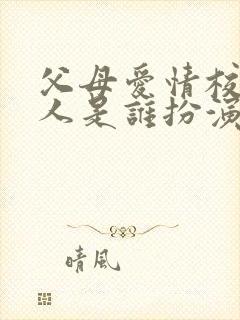 父母愛情校
人是誰扮演
晴風